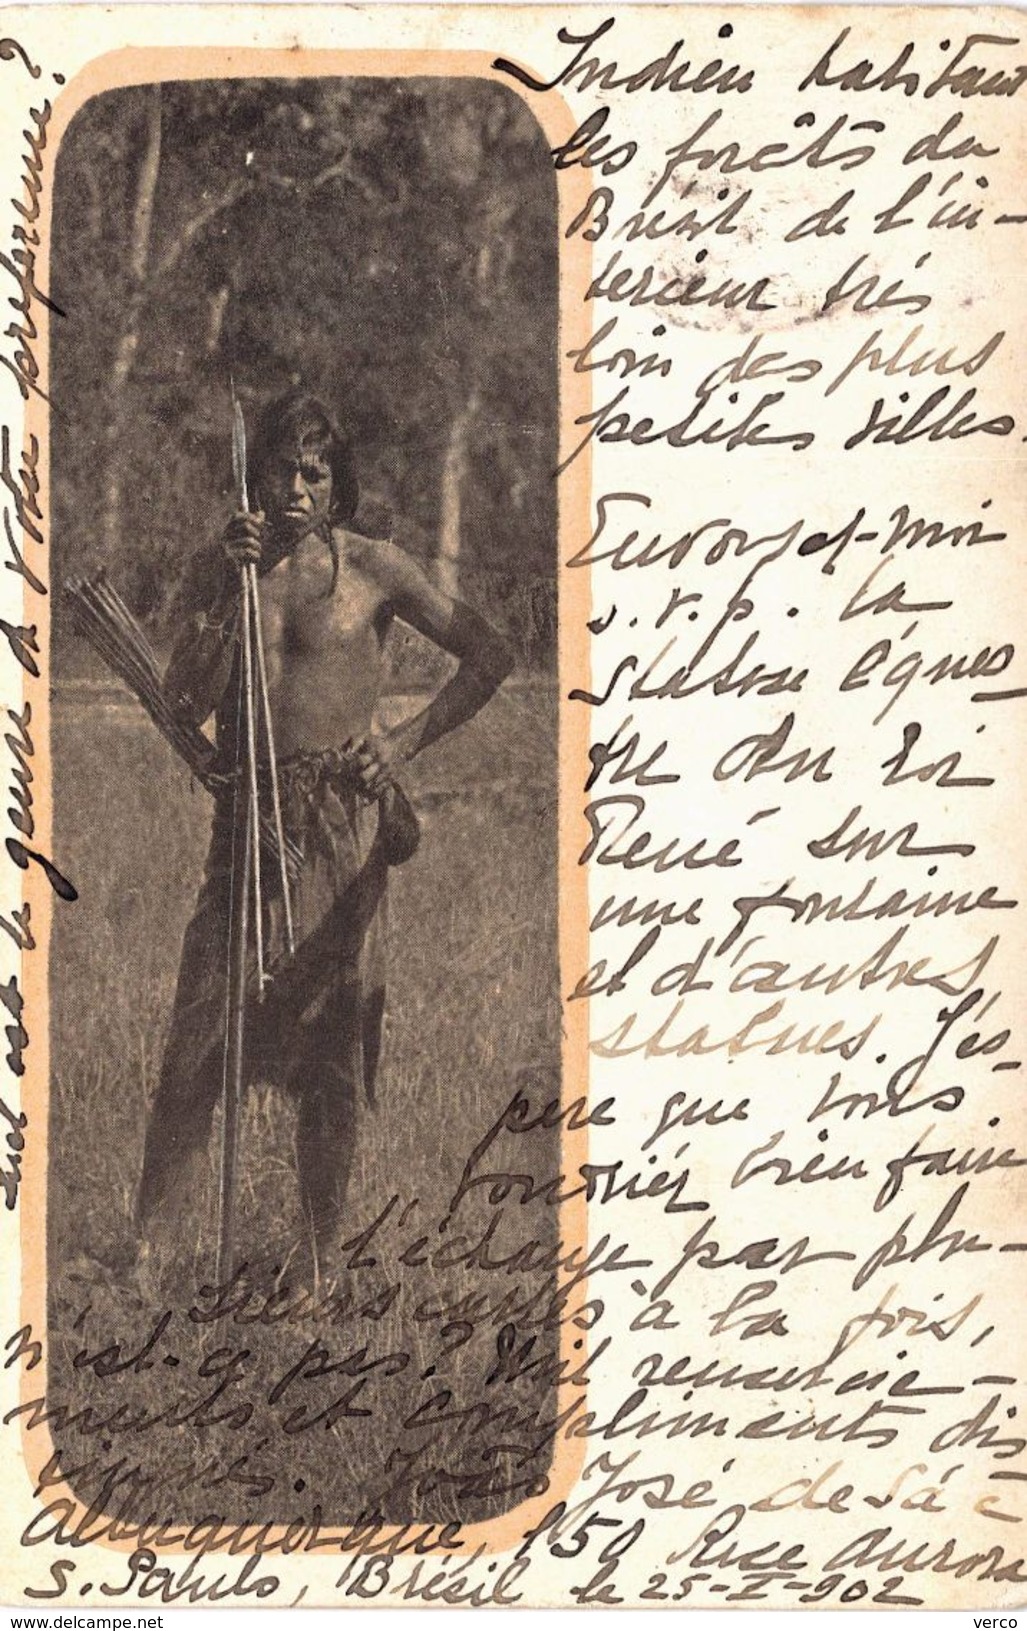 Indien habitant
les forêts du
Brésil de l'in-
terieur très
loin des plus
petites villes.
Envoyez-moi
s.v.p. la
statue éques-
tre du roi
René sur
une fontaine
et d'autres
statues. J'es-
pere que vous
voudriez bien faire
l'échange par plu-
sieurs cartes à la fois,
n'est-ce pas? Mil remercie-
ments et compliments dis
tingués. João José de Sá e
Albuquerque, 150 Rue Aurora
S. Paulo, Brésil le 25-I-902
Quel est le genre d Votre preference?
www.delcampe.net
verco